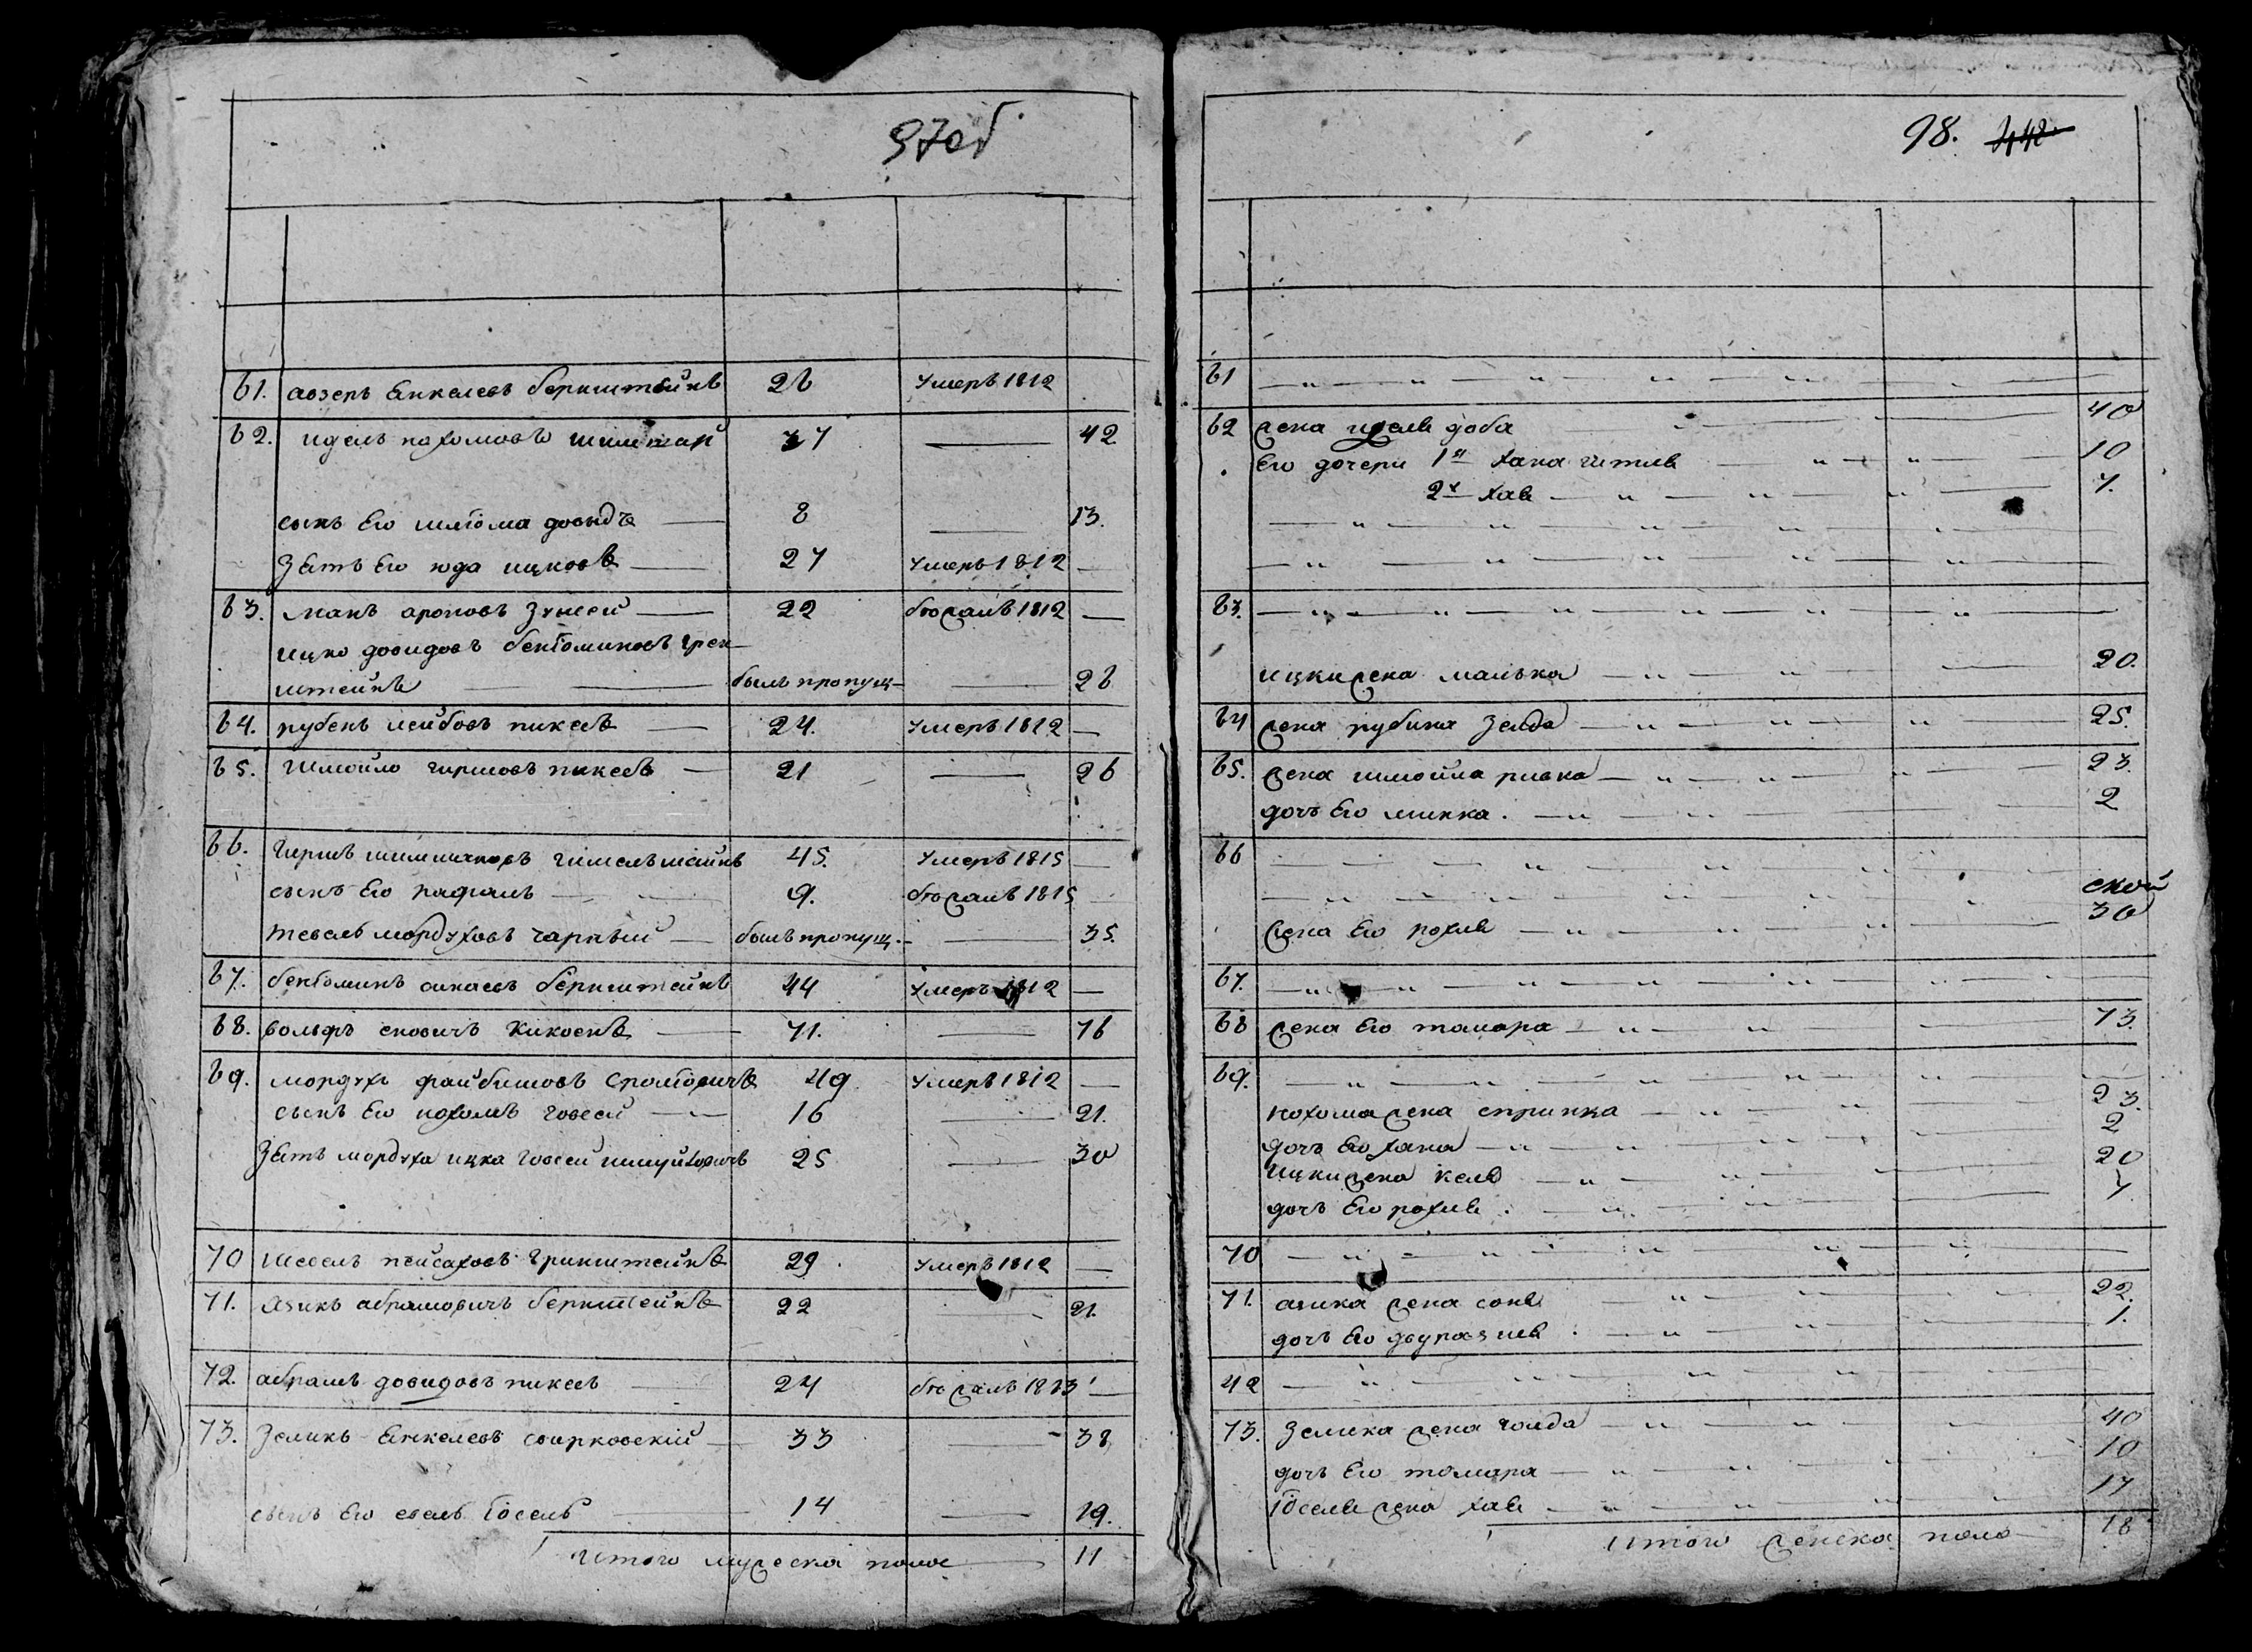 97об
61. аозеръ Енкелевъ бернштейнъ 26 умеръ 1812
62. иделъ нахомовъ 37 — 42
сынъ Его шлiома довыдъ — 8 — 13.
Зять Его юда ицковъ — 27 умеръ 1812 —
63. манъ ароновъ — 22 бѣжалъ 1812 —
ицко довидовъ бенiоминовъ грен
штейнъ — былъ пропущ — 26
64. рубенъ лейбовъ пикеръ — 24. умеръ 1812 —
65. Шмойло гиршовъ пикеръ — 21 — 26
66. Гиршъ 45. умеръ 1815 —
сынъ Его рафалъ — 9. бѣжалъ 1815 —
тевель мордуховъ чарный — былъ пропущ. — 35.
67. бенiоминъ бернштейнъ 44 умеръ 1812 —
68. вольфъ 71. — 76
69. мордухъ файбишовъ 49 умеръ 1812 —
сынъ Его нохомъ говсей — 16 — 21.
Зять мордуха ицка говсей 25 — 30
70 Шевелъ пейсаховъ гринштейнъ 29 умеръ 1812 —
71. абрамовичъ бернштейнъ 22 — 21.
72. абрамъ довидовъ пикеръ — 24 бѣжалъ 1813 —
73. Зеликъ Енкелевъ свирковскiй — 33 — 38
сынъ Его евель iосель — 14 — 19.
Итого мужеска полое — 11
98. 442
61
62 жена иделя доба 40
Его дочери 1я хана гитля 10
2я хая 7.
63.
ицки жена малька 20.
64 жена рубина Зелда 25.
65. жена шмойла ривка 23.
дочь Его минка. 2
66
жена Его рохля 30
67.
68 жена Его томара 73.
69.
нохома жена спринца 23.
дочь Его хана 2
ицки жена 20
дочь Его рохля. 7
70
71. жена соня 22.
дочь Его двуразля. 1.
42
73. Зелика жена голда 40
дочь Его томара 10
iоселя жена хая 17
Итого женска пола 18